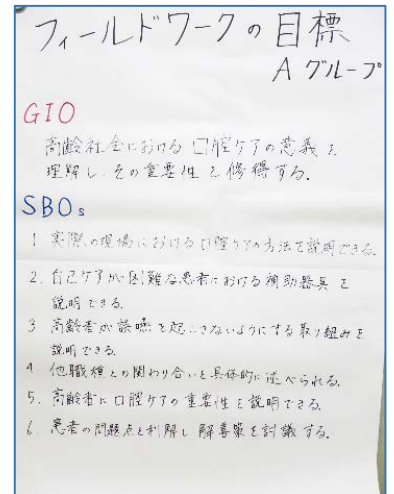 フィールドワークの目標
A グループ
GIO
高齢社会における口腔ケアの意義を
理解し、その重要性を修得する。
SBOs
1 実際の現場における口腔ケアの方法を説明できる。
2. 自己ケアが困難な患者における補助器具を
説明できる。
3 高齢者が誤嚥を起こさないようにする取り組みを
説明できる。
4. 他職種との関わり合いを具体的に述べられる。
5. 高齢者に口腔ケアの重要性を説明できる。
6. 患者の問題点を利解し解善策を討議する。